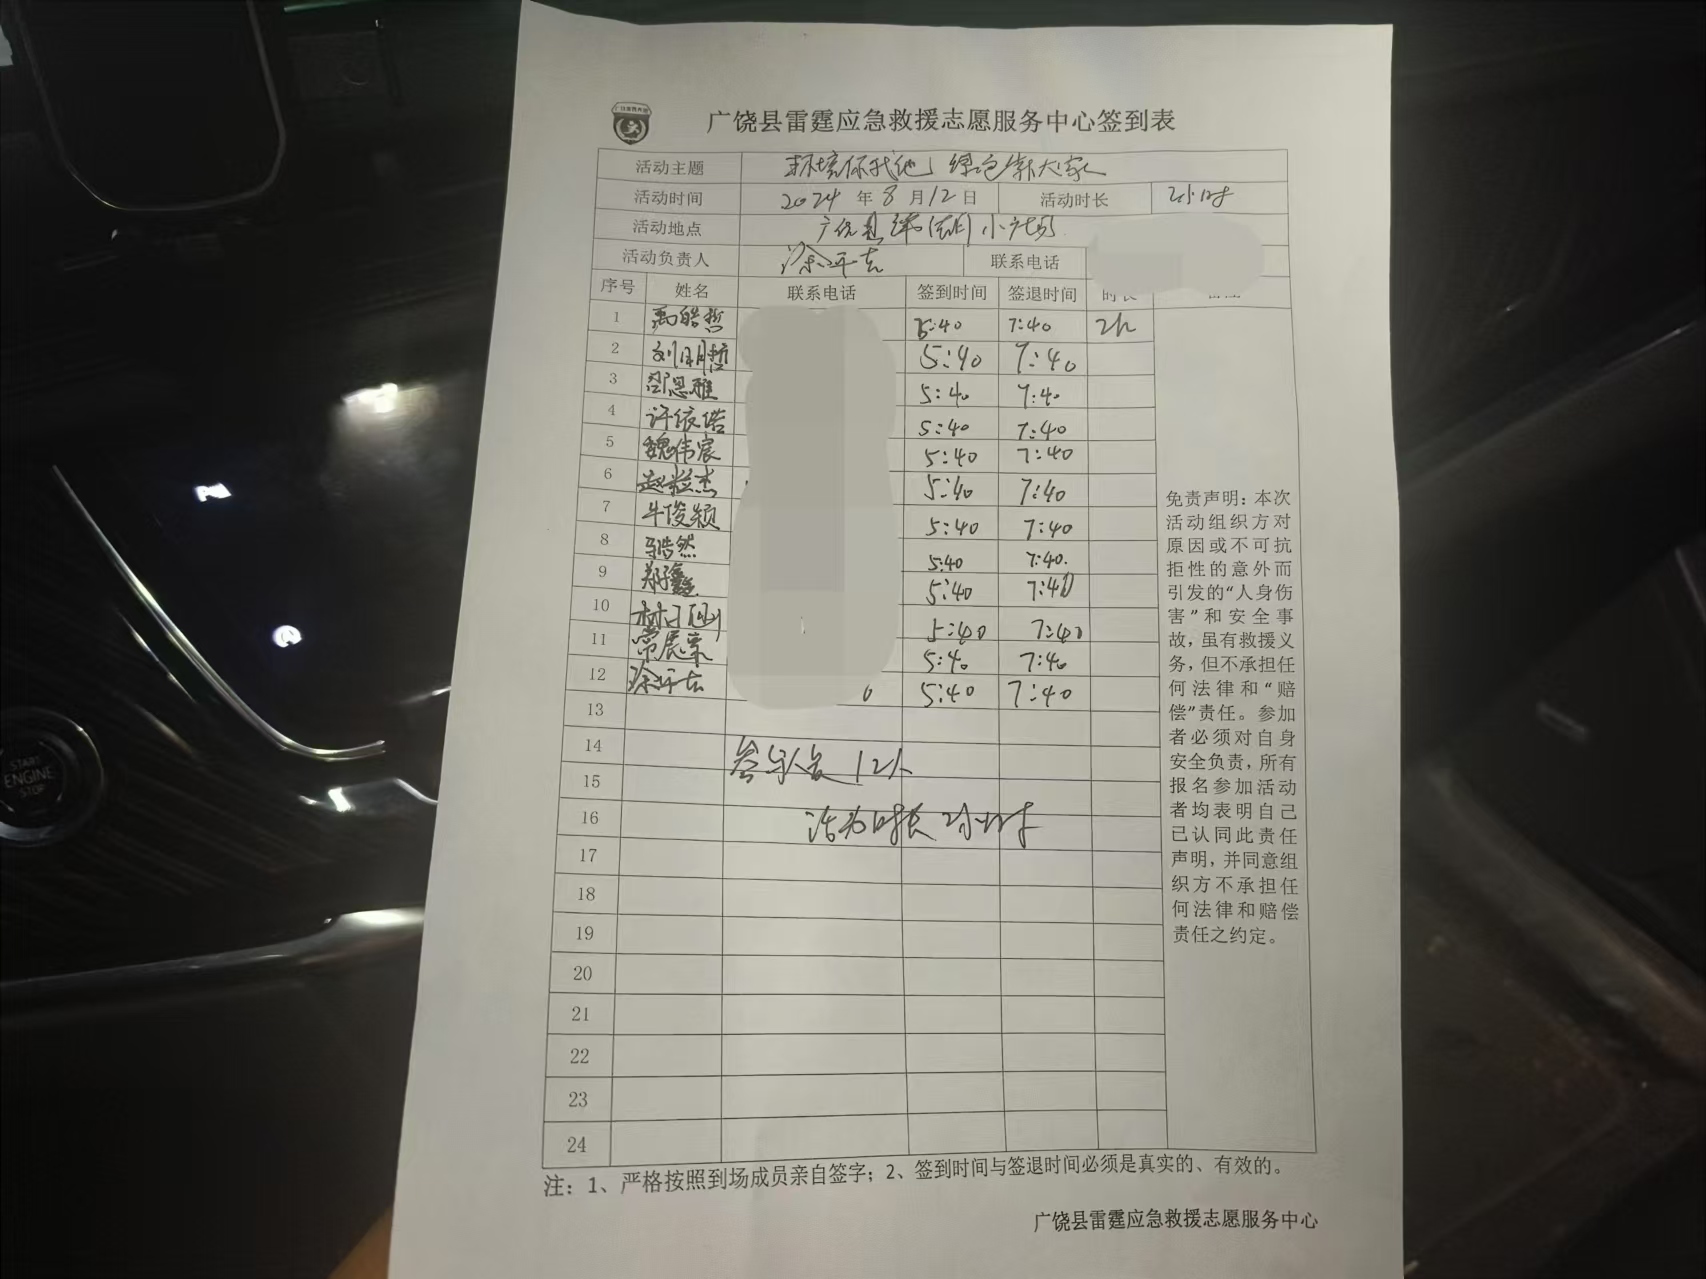 广饶县雷霆应急救援志愿服务中心签到表
活动主题 环境你我他 绿色靠大家
活动时间 2024 年 8 月 12 日 活动时长 2小时
活动地点 广饶县 小广场
活动负责人 徐平志 联系电话
序号 姓名 联系电话 签到时间 签退时间 时长
1 禹皓哲 5:40 7:40 2h
2 刘明哲 5:40 7:40
3 邵思雅 5:40 7:40
4 许依诺 5:40 7:40
5 魏伟宸 5:40 7:40
6 赵 杰 5:40 7:40
7 牛俊颖 5:40 7:40
8 马浩然 5:40 7:40.
9 郑 鑫 5:40 7:40
10 5:40 7:40
11 常 5:40 7:40
12 徐平志 6 5:40 7:40
13
14 签字人员 12人
15
16 活动时长 2小时
17
18
19
20
21
22
23
24
免责声明：本次
活动组织方对
原因或不可抗
拒性的意外而
引发的“人身伤
害”和安全事
故，虽有救援义
务，但不承担任
何法律和“赔
偿”责任。参加
者必须对自身
安全负责，所有
报名参加活动
者均表明自己
已认同此责任
声明，并同意组
织方不承担任
何法律和赔偿
责任之约定。
注：1、严格按照到场成员亲自签字；2、签到时间与签退时间必须是真实的、有效的。
广饶县雷霆应急救援志愿服务中心
START
ENGINE
STOP